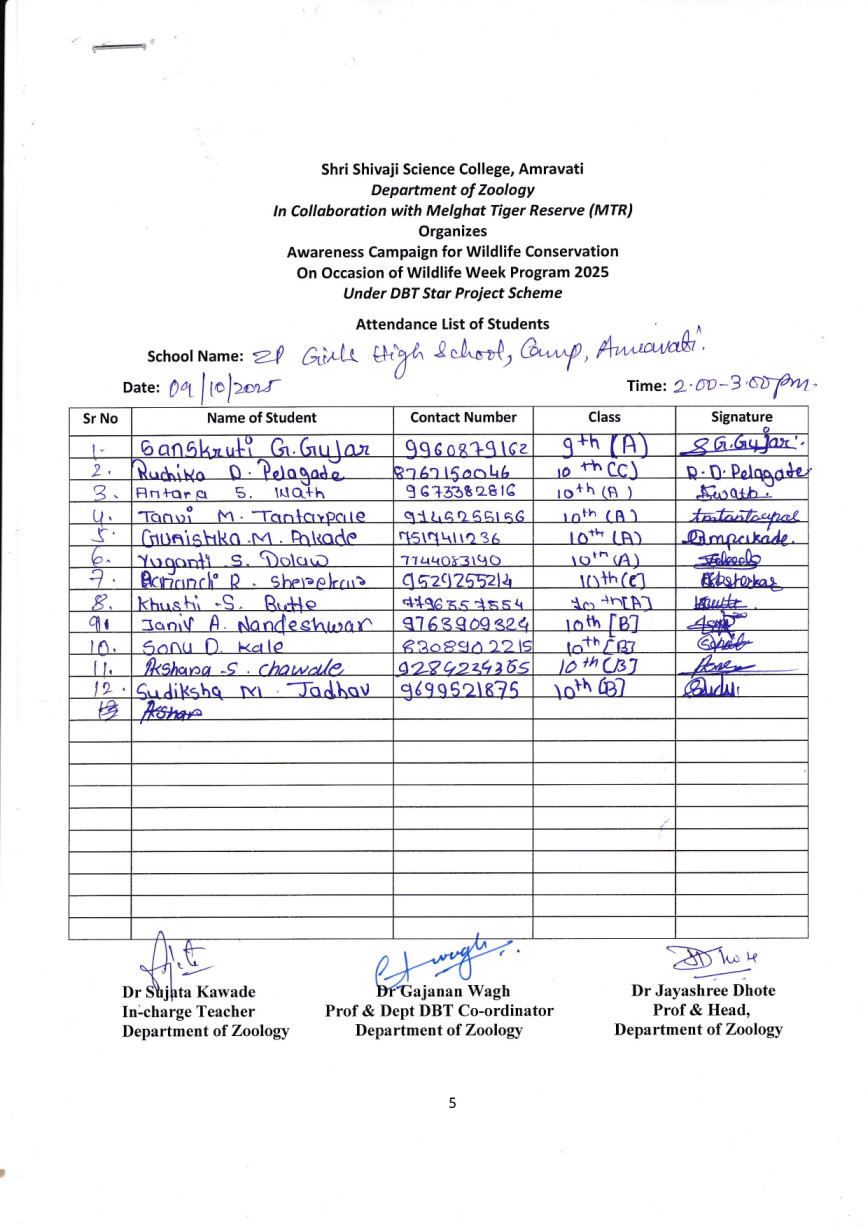 Shri Shivaji Science College, Amravati
Department of Zoology
In Collaboration with Melghat Tiger Reserve (MTR)
Organizes
Awareness Campaign for Wildlife Conservation
On Occasion of Wildlife Week Program 2025
Under DBT Star Project Scheme
Attendance List of Students
School Name: ZP Girls High School, Camp, Amravati.
Date: 09/10/2025 Time: 2.00-3.00pm.
Sr No Name of Student Contact Number Class Signature
1. Sanskruti G. Gujar 9960879162 9th (A) S G. Gujar
2. Ruchika D. Pelagade 8767150046 10th (C) R.D. Pelagade
3. Antara S. Wath 9673382816 10th (A)
4. Tanvi M. Tantarpale 9145255156 10th (A)
5. Gunishka M. Ankade 7517411236 10th (A)
6. Yuganti S. Dolaw 7744083140 10th (A)
7. R. 9529255214 10th (C)
8. Khushi S. Butte 7796557554 10th [A]
9. A. Nandeshwar 9763909324 10th [B]
10. Sonu D. Kale 8308902215 10th [B]
11. Akshara S. Chawale 9284234365 10th (B)
12. Sudiksha M. Jadhav 9699521875 10th (B)
Dr Sujata Kawade Dr Gajanan Wagh Dr Jayashree Dhote
In-charge Teacher Prof & Dept DBT Co-ordinator Prof & Head,
Department of Zoology Department of Zoology Department of Zoology
5